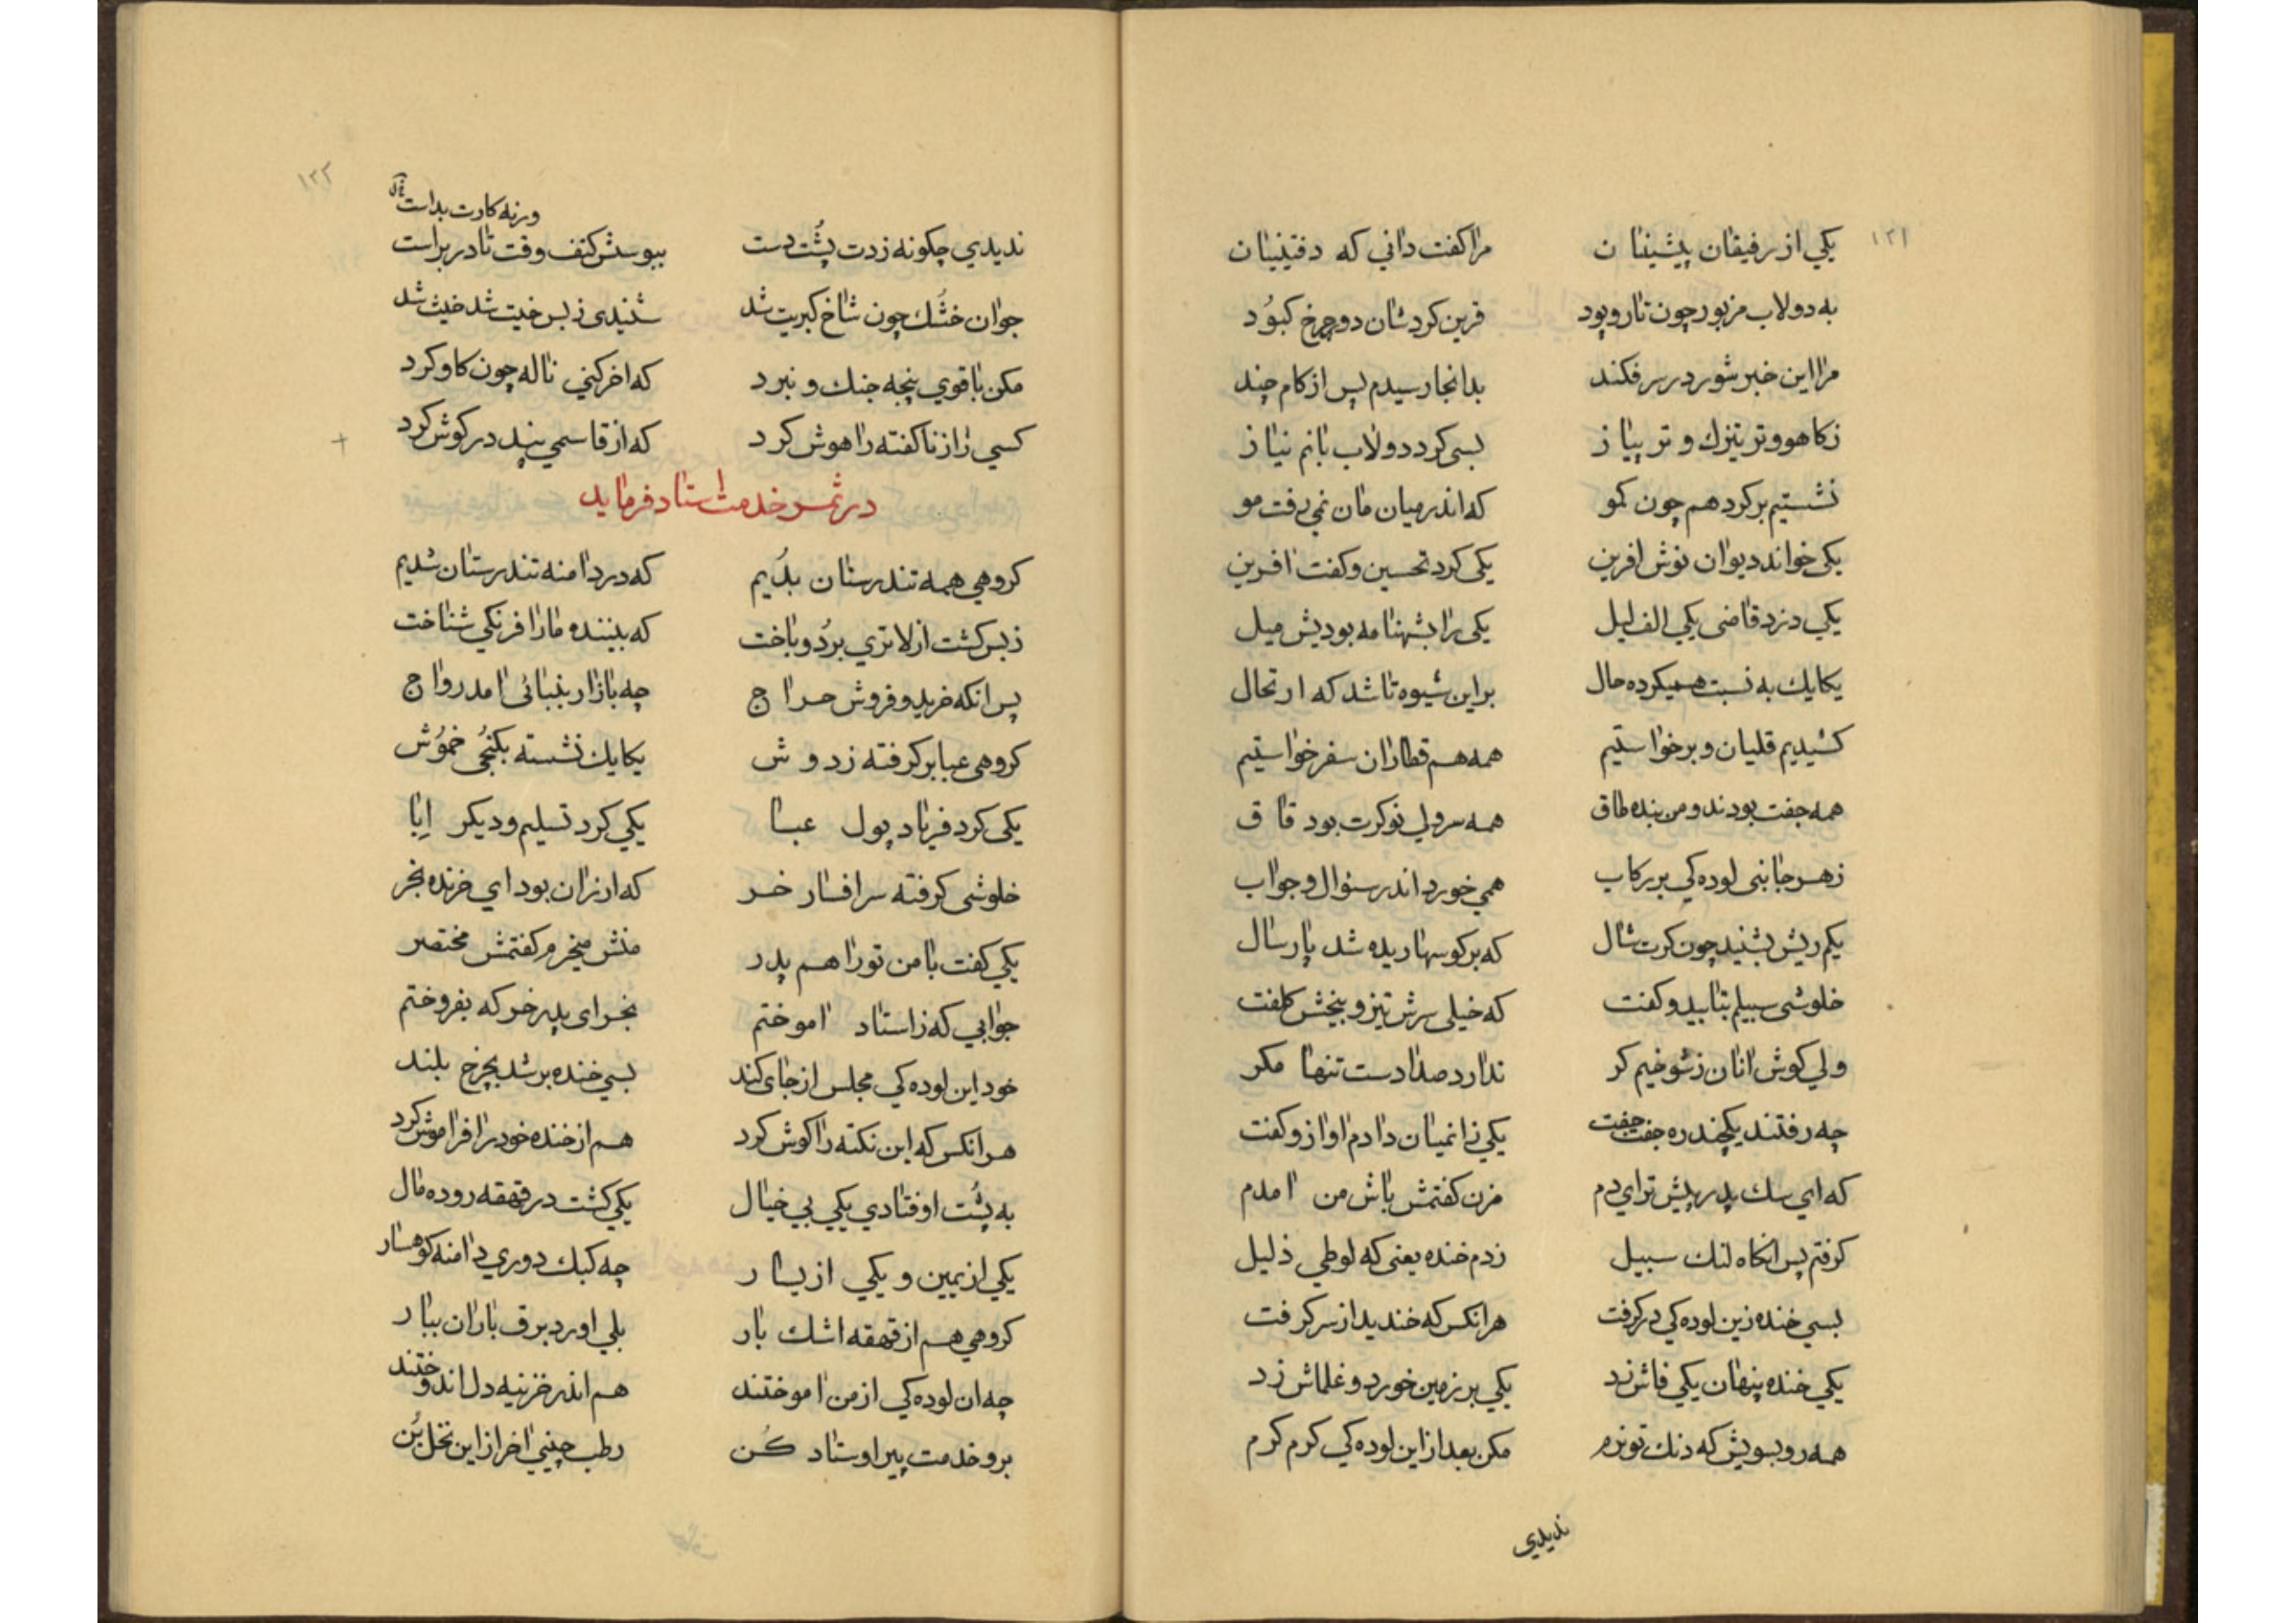 ۱۲۱
یکي از رفیقان پیشینان مرا کفت داني که دفتینیان
به دولاب مزبور چون تار و پود قرین کرد شان دو چرخ کبوُد
مرا این خبر شور در سر فکند بدانجا رسیدم پس از کام چند
زکاهو و تر بتزك و تر پیاز بسی کرد دولاب بانم نیاز
نشستیم بر کرد هم چون کمو که اندر میان مان نمي رفت مو
یکی خواند دیوان نوش افرین یکی کرد تحسین و کفت افرین
یکي دزد قاضی یکي الف لیل یکی را بشهنامه بودیش میل
یکایك به نسبت همیکرده حال براین شیوه تا شد که ارتحال
کشیدیم قلیان و برخواستیم همه هم قطاران سفر خواستیم
همه جفت بودند و من بنده طاق همه سرولي نوکرت بود قاق
زهر جانبی لوده کي بر رکاب همي خورد اندر سئوال و جواب
یکم ریش بشنید چون کرت شال که برکوسها ریده شد پارسال
خلوشی سبیلم بتابید و کفت که خیلی سرش تیز و بیخش کلفت
ولي کوش انان زشوخیم کر ندارد صدا دست تنها مکر
چه رفتند یکچند ره جفت جفت یکي زانمیان دادم اواز و کفت
که اي سك پدر پیش تر اي دم مزن کفتمش باش من امدم
کرفتم پس انکاه لنك سبیل زدم خنده یعنی که لوطي ذلیل
بسي خنده زین لوده کي در کرفت هر انکس که خندید از سر کرفت
یکي خنده پنهان یکي فاش زد یکي بر زمین خورد و غلماش زد
همه رو بسویش که دنك تو نرم مکن بعد از این لوده کي کرم کرم
ندیدي
۱۲۲
ورنه کارت بد است
ندیدي چکونه زدت پُشت دست ببوسش کتف وقت تا در براست
جوان خشُك چون شاخ کبریت شد شنیدی زبس خیت شد خیت شد
مکن با قوي پنجه جنك و نبرد که اخر کني ناله چون کاو کرد
کسي راز ناکفته را هوش کرد که از قاسمي پند در کوش کرد
در ثمر خدمت استاد فرماید
کروهي همه تندرستان بدُیم که در دامنه تندرستان شدیم
زبس کشت از لاتري برُد و باخت که بیننده مارا فرنکي شناخت
پس انکه خرید و فروش حراج چه بازار بنبائی امد رواج
کروهی عبا بر کرفته زدوش یکایك نشسته بکنجُی خموُش
یکی کرد فریاد پول عبا یکي کرد تسلیم و دیکر اِبا
خلوشی کرفته سر افسار خر که ارزان بود اي خرنده بخر
یکي کفت با من تورا هم پدر منش میخرم کفتمش مختصر
جوابي که زاستاد اموختم بخر ای پدر خر که بفروختم
خود این لوده کي مجلس از جای کند بسي خنده بر شد بچرخ بلند
هر انکس که این نکته را کوش کرد هم از خنده خود را فراموش کرد
به پشُت اوفتادي یکي بي خیال یکي کشت در قهقه روده مال
یکي از یمین و یکي از یسار چه کبك دوري دامنه کوهسار
کروهي هم از قهقه اشك بار بلي اورد برق باران ببار
چه ان لوده کي از من اموختند هم اندر خزینه دل اندوختند
برو خدمت پیر اوستاد کُن رطب چیني اخر از این نخل بُن